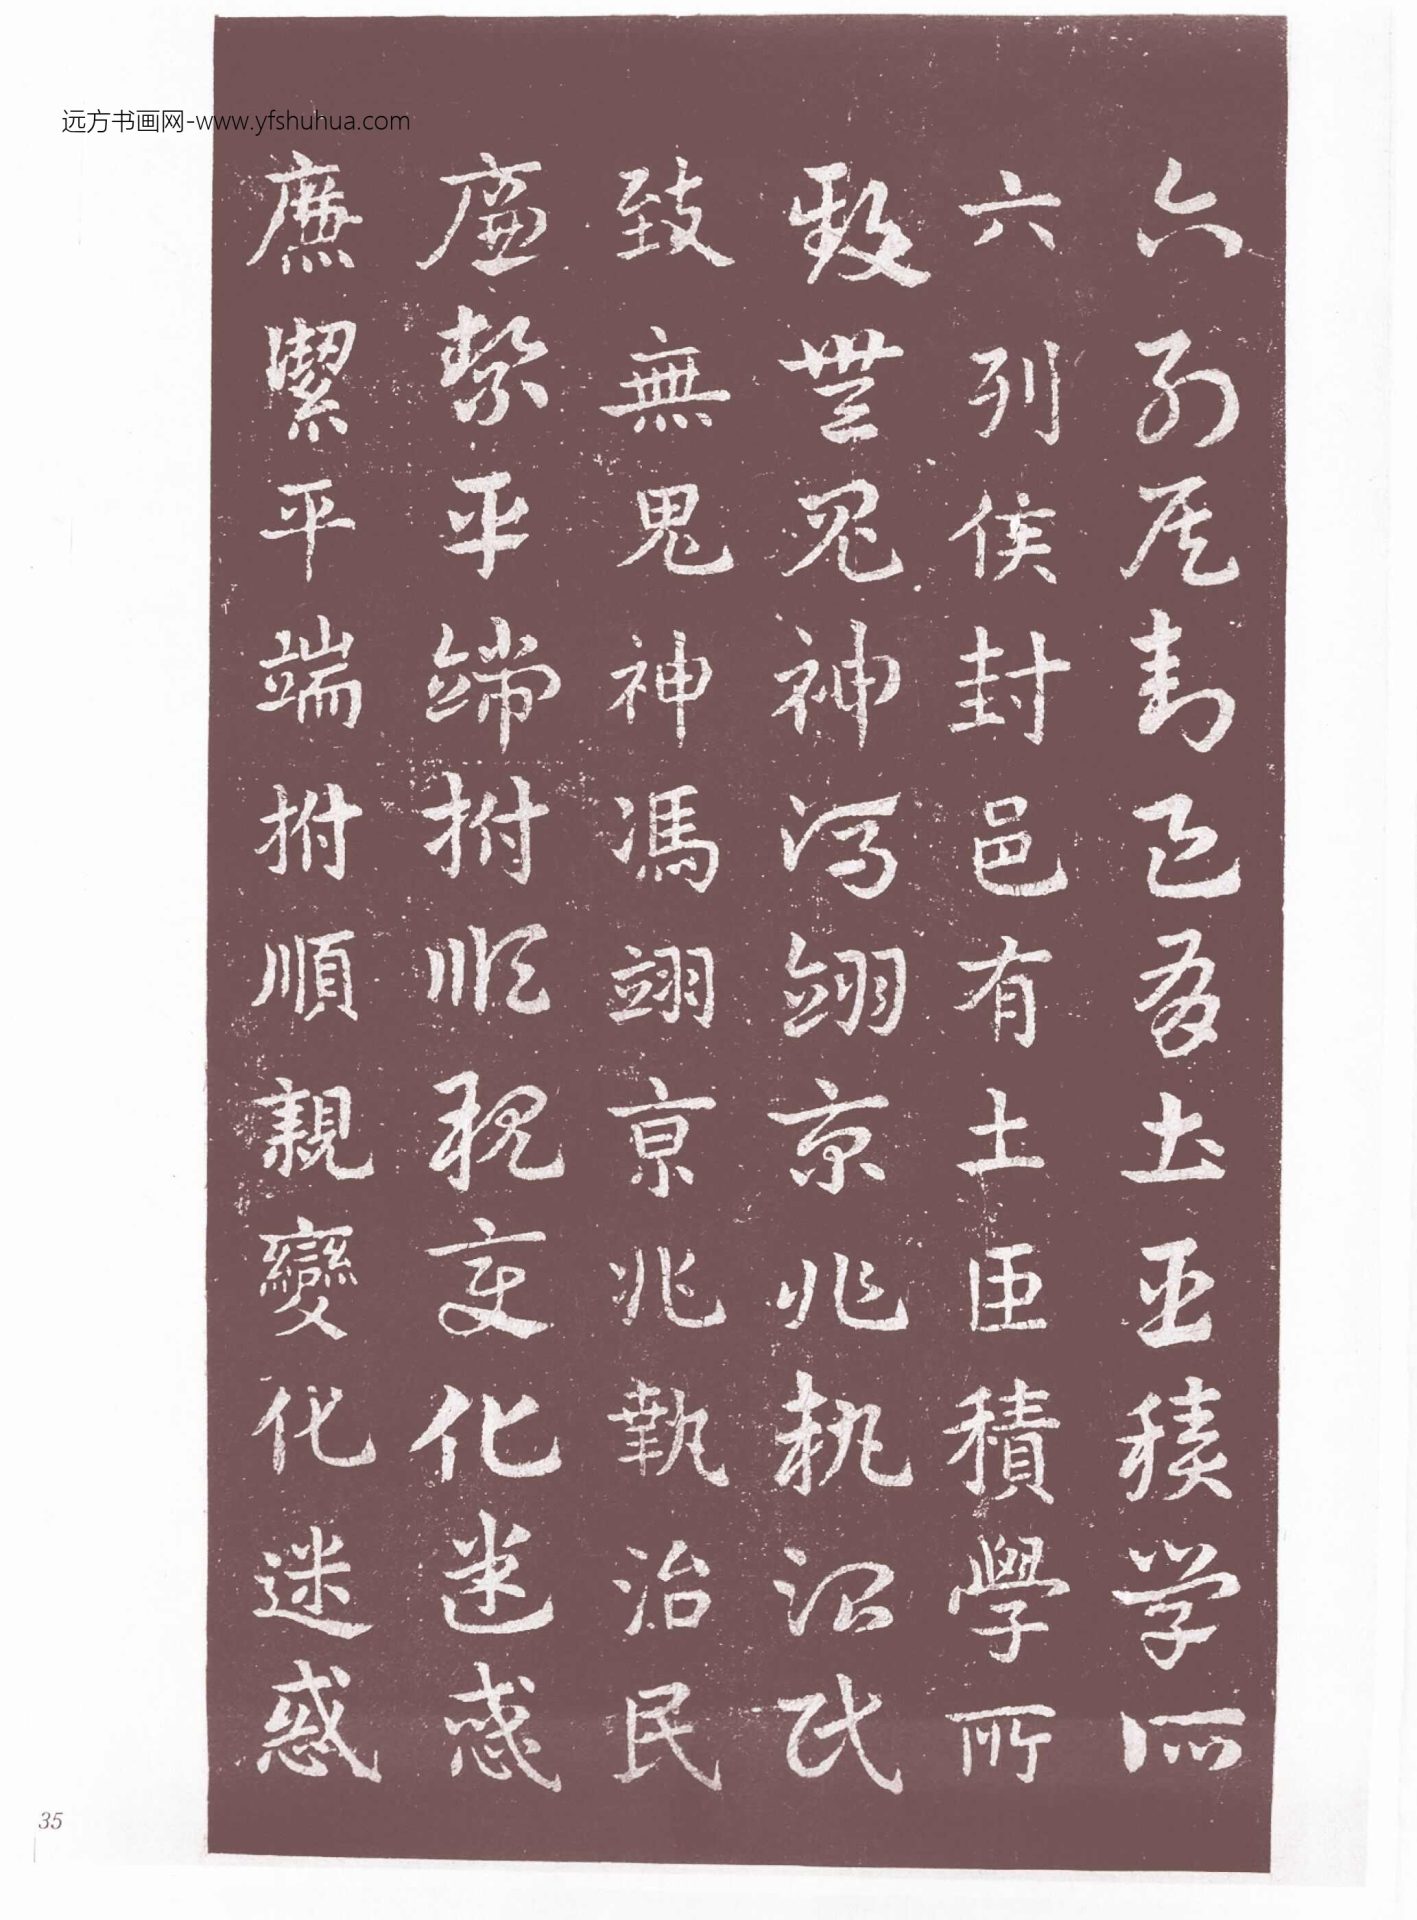 远方书画网-www.yfshuhua.com
六列侯封邑有土臣積學所
六列侯封邑有土臣積學所
致無鬼神馮翊京兆執治民
致無鬼神馮翊京兆執治民
廉絜平端拊順親變化迷惑
廉潔平端拊順親變化迷惑
35